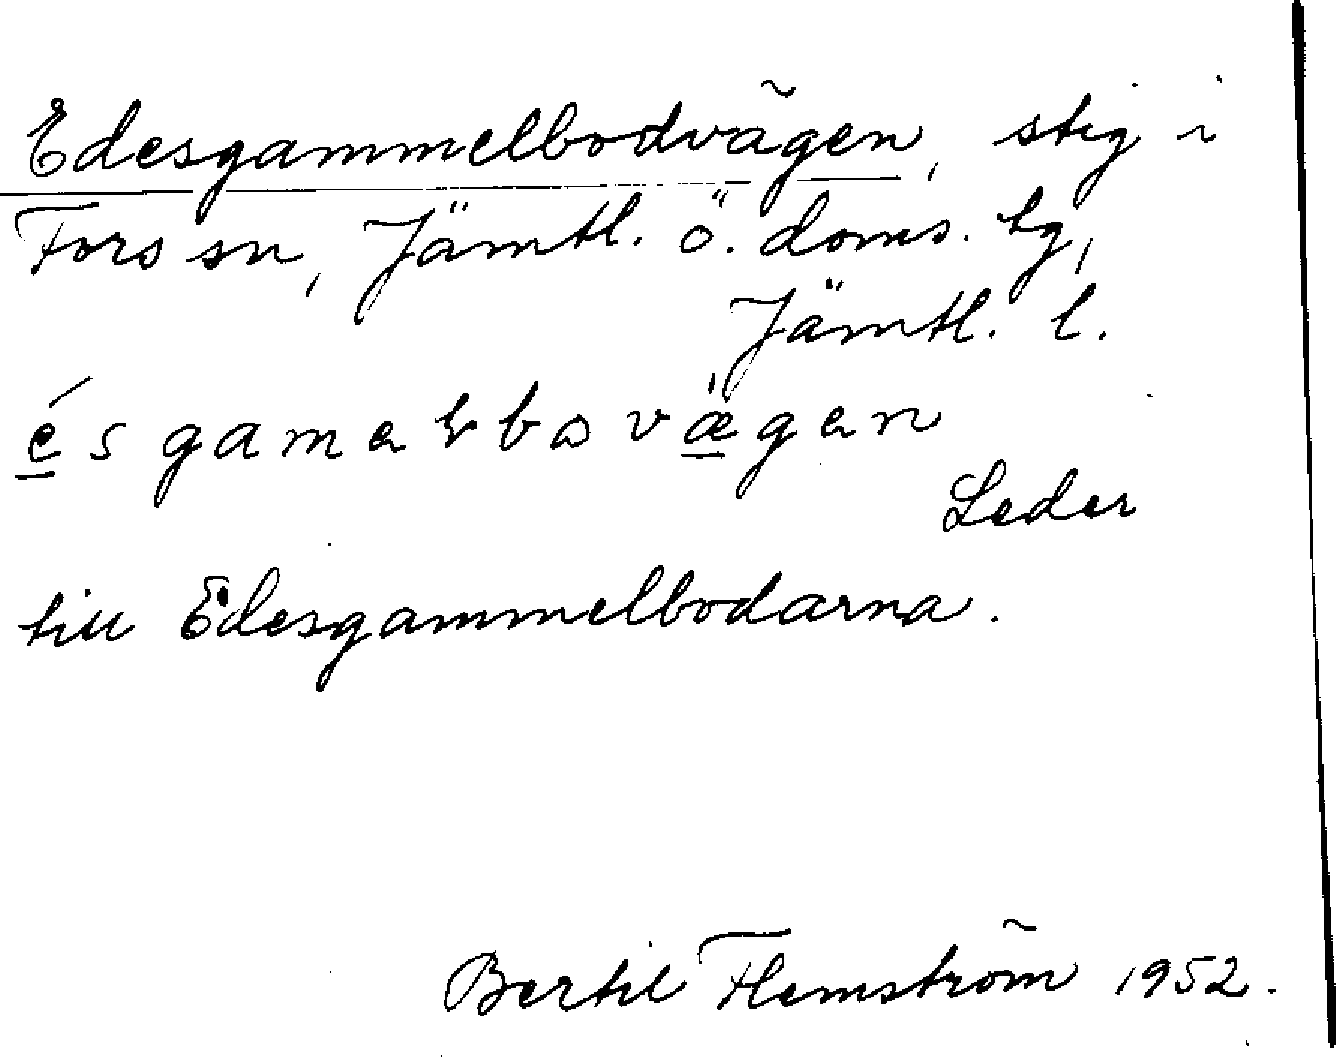 Edesgammelbodvägen, stig i
Fors sn, Jämtl. ö. doms. tg,
Jämtl. l.
Leder
till Edesgammelbodarna.
Bertil Flemström 1952.